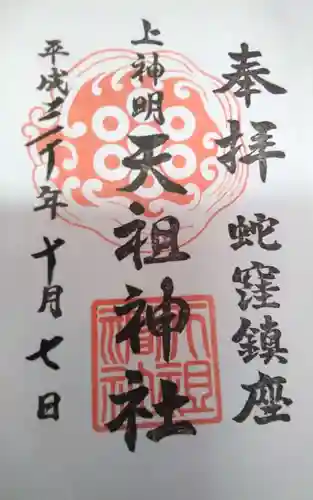 奉拝 蛇窪鎮座
上神明
天祖神社
平成三十年十月七日